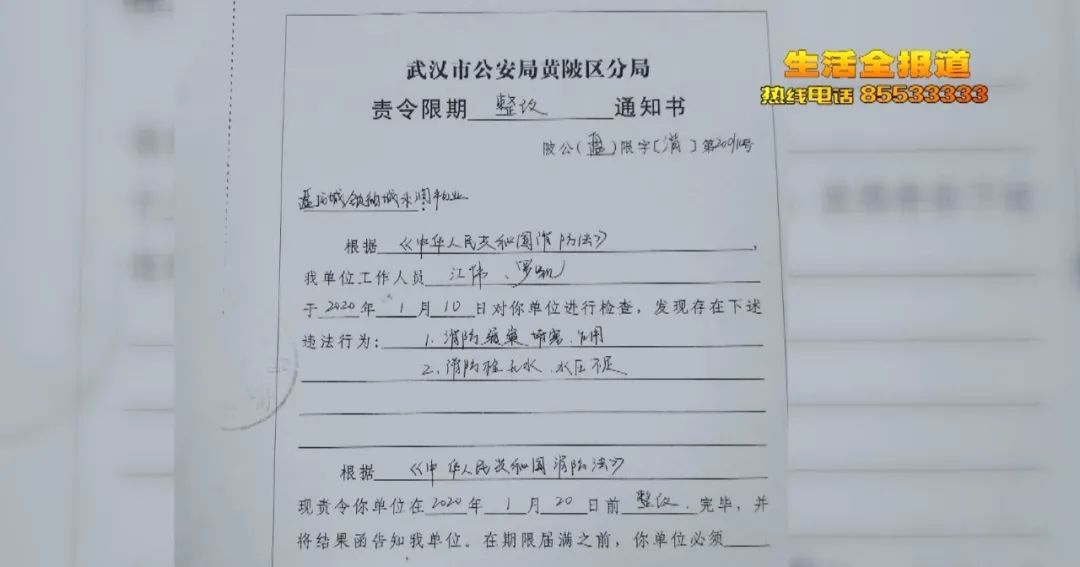 生活全报道
热线电话 85533333
武汉市公安局黄陂区分局
责令限期 整改 通知书
陂公(盘)限字[消]第号
盘龙城领袖城永润物业
根据《中华人民共和国消防法》,
我单位工作人员 江伟、罗凯
于2020年1月10日对你单位进行检查,发现存在下述
违法行为: 1、消防通道堵塞、占用
2、消防栓无水、水压不足
根据《中华人民共和国消防法》
现责令你单位在2020年1月20日前 整改 完毕,并
将结果函告知我单位。在期限届满之前,你单位必须